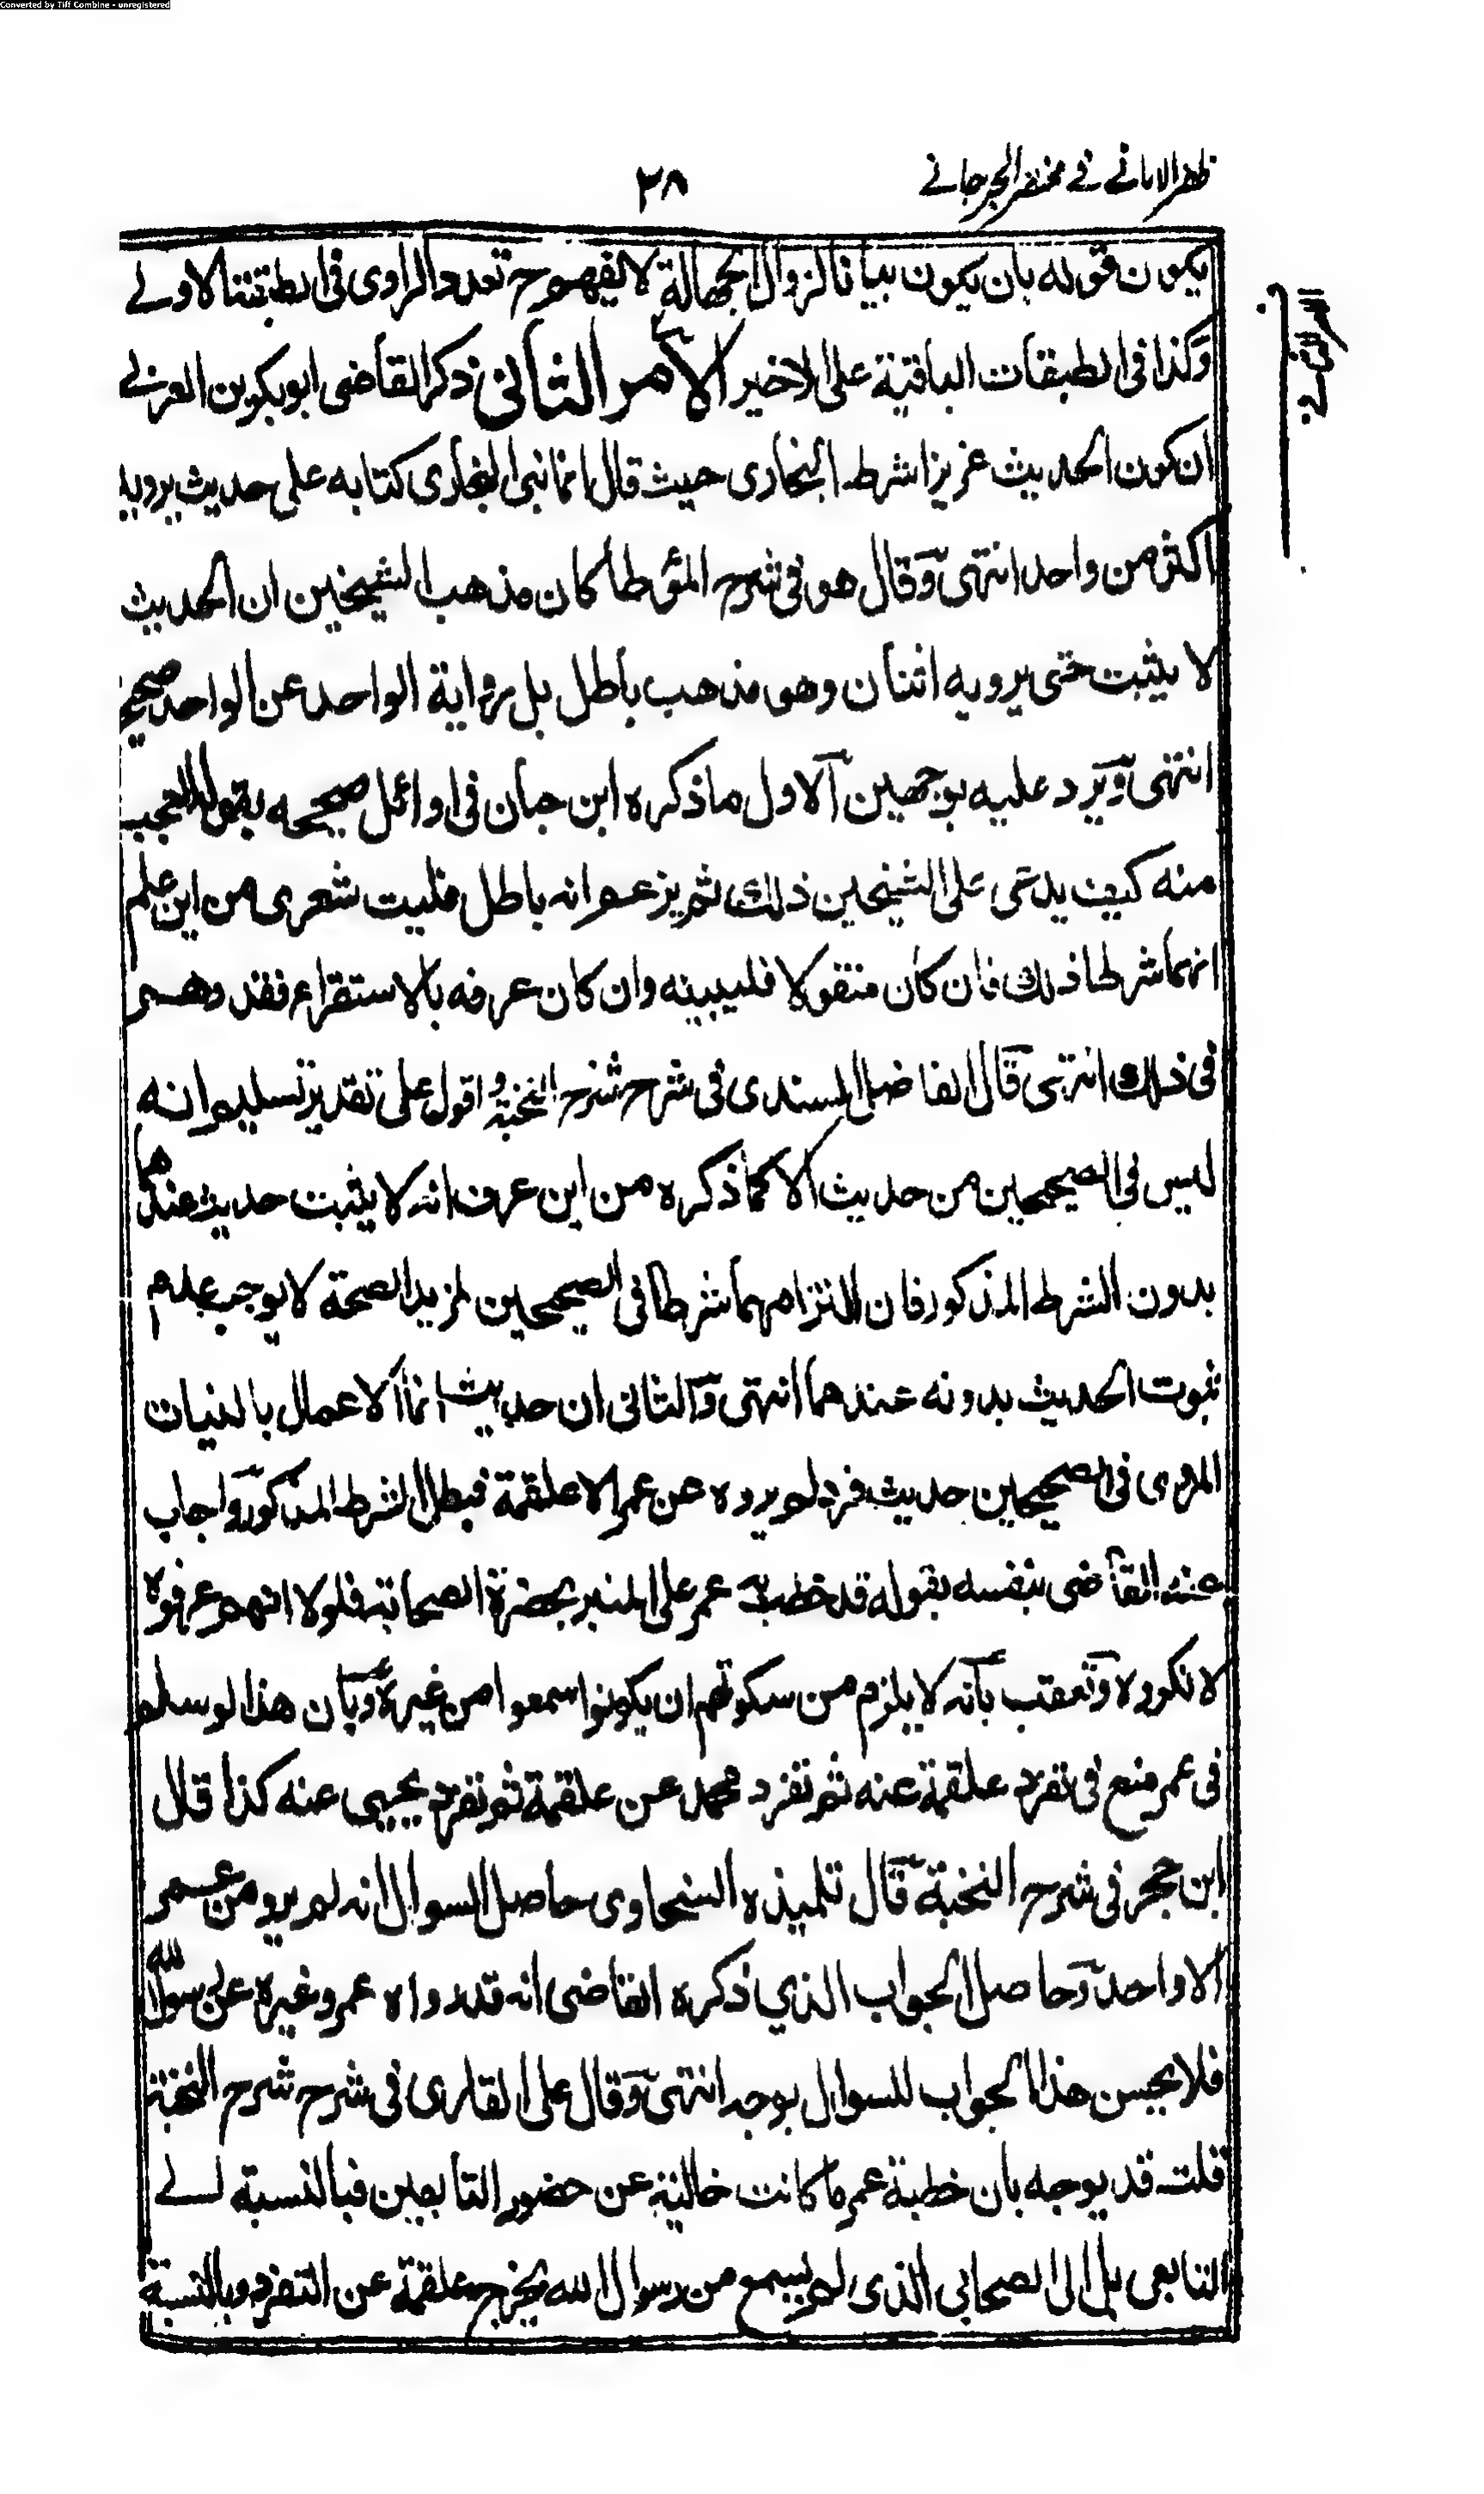 Converted by Tiff Combine - unregistered
ظفر الامانے فے مختصر الجرجانے
٣٨
يكون فقوله بان يكون بيانا لزوال الجهالة لا يفهم تعدد الراوى فى الطبقة الاولے
وكذا فى الطبقات الباقية على الاخير الامر الثانى ذكر القاضى ابو بكر بن العربے
ان كون الحديث عزيزا شرط البخارى حيث قال انما بنى البخارى كتابه على حديث يرويه
اكثر من واحد انتهى وقال هو فى شرح المؤطا كان مذهب الشيخين ان الحديث
لا يثبت حتى يرويه اثنان وهو مذهب باطل بل رواية الواحد عن الواحد صحيح
انتهى ويرد عليه بوجهين الاول ما ذكره ابن حبان فى اوائل صحيحه بقوله العجب
منه كيف يدعى على الشيخين ذلك ثم يزعم انه باطل فليت شعرى من اين علم
انهما شرطا ذلك فان كان منقولا فليبينه وان كان عرفه بالاستقراء فقد وهم
فى ذلك انتهى قال الفاضل السندى فى شرح شرح النخبة واقول على تقدير تسليم انه
ليس فى الصحيحين من حديث الا كما ذكره من اين عرف انه لا يثبت حديث عندهما
بدون الشرط المذكور فان التزامهما شرطا فى الصحيحين لمزيد الصحة لا يوجب عدم
ثبوت الحديث بدونه عندهما انتهى والثانى ان حديث انما الاعمال بالنيات
المروى فى الصحيحين حديث فرد لم يروه عن عمر الا علقمة فبطل الشرط المذكور واجاب
عنه القاضى بنفسه بقوله قد خطب به عمر على المنبر بحضرة الصحابة فلولا انهم عرفوه
لانكروه وتعقب بانه لا يلزم من سكوتهم ان يكونوا سمعوا من غيره وبان هذا لو سلم
فى عمر منع فى تفرد علقمة عنه ثم تفرد محمد عن علقمة ثم تفرد يحيى عنه كذا قال
ابن حجر فى شرح النخبة قال تلميذه السخاوى حاصل السوال انه لم يرو من عمر
الا واحد وحاصل الجواب الذي ذكره القاضى انه قد رواه عمر وغيره عن رسول الله
فلا يحسن هذا الجواب للسوال بوجه انتهى وقال على القارى فى شرح شرح النخبة
قلت قد يوجه بان خطبة عمر ما كانت خالية عن حضور التابعين فبالنسبة لے
التابعى بل الى الصحابي الذى لم يسمع من رسول الله يخرج علقمة عن التفرد وبالنسبة